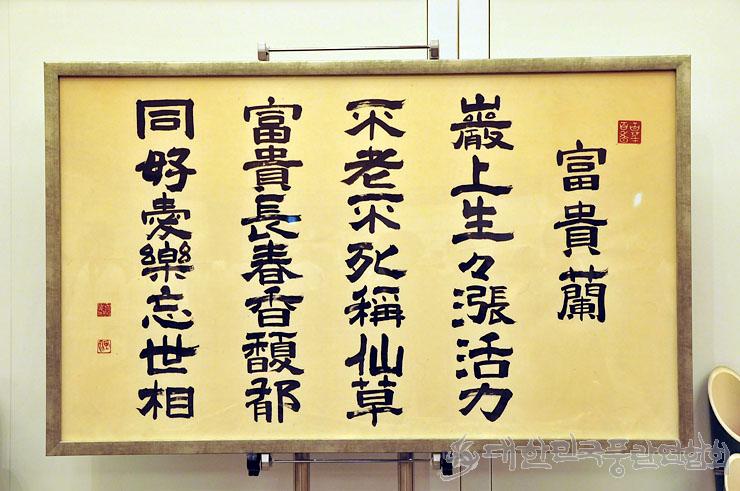 富貴蘭
巖上生々漲活力
不老不死稱仙草
富貴長春香馥郁
同好愛樂忘世相
대한민국풍란연합회